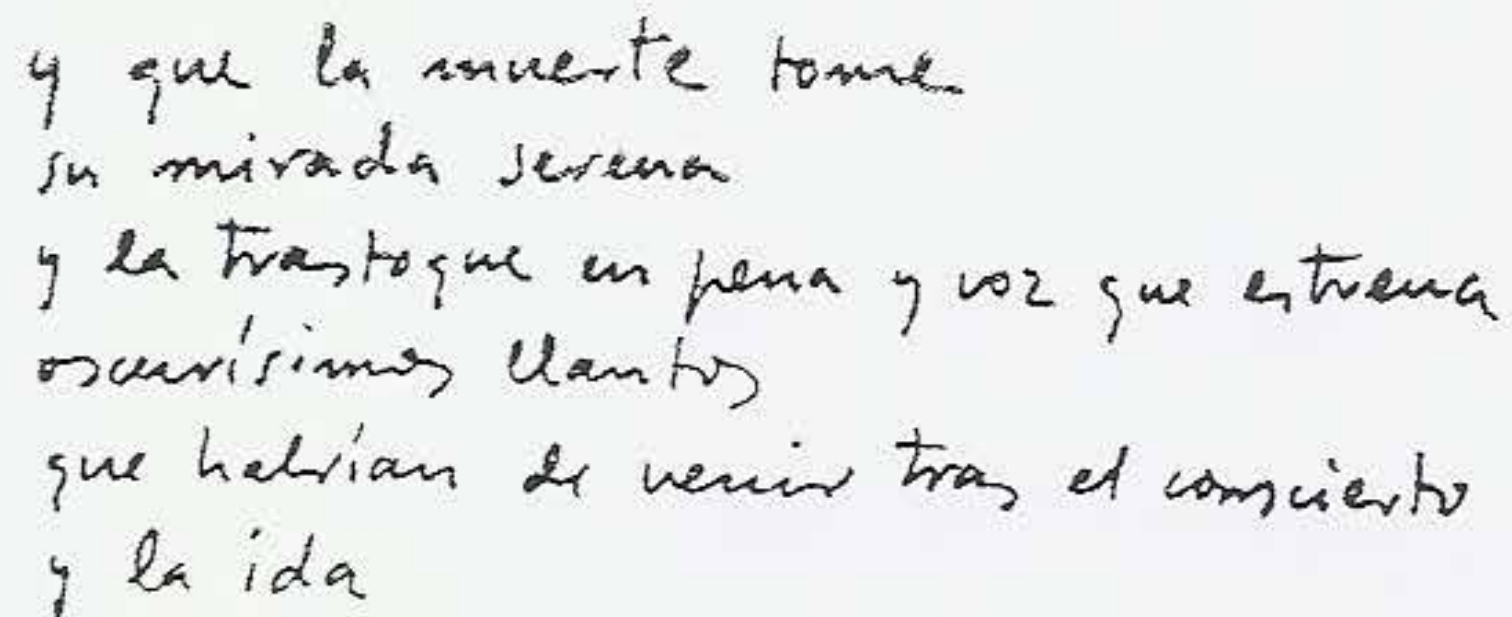 y que la muerte tome
su mirada serena
y la trastoque en pena y voz que estrena
oscurísimos llantos
que habrían de venir tras el conscierto
y la ida